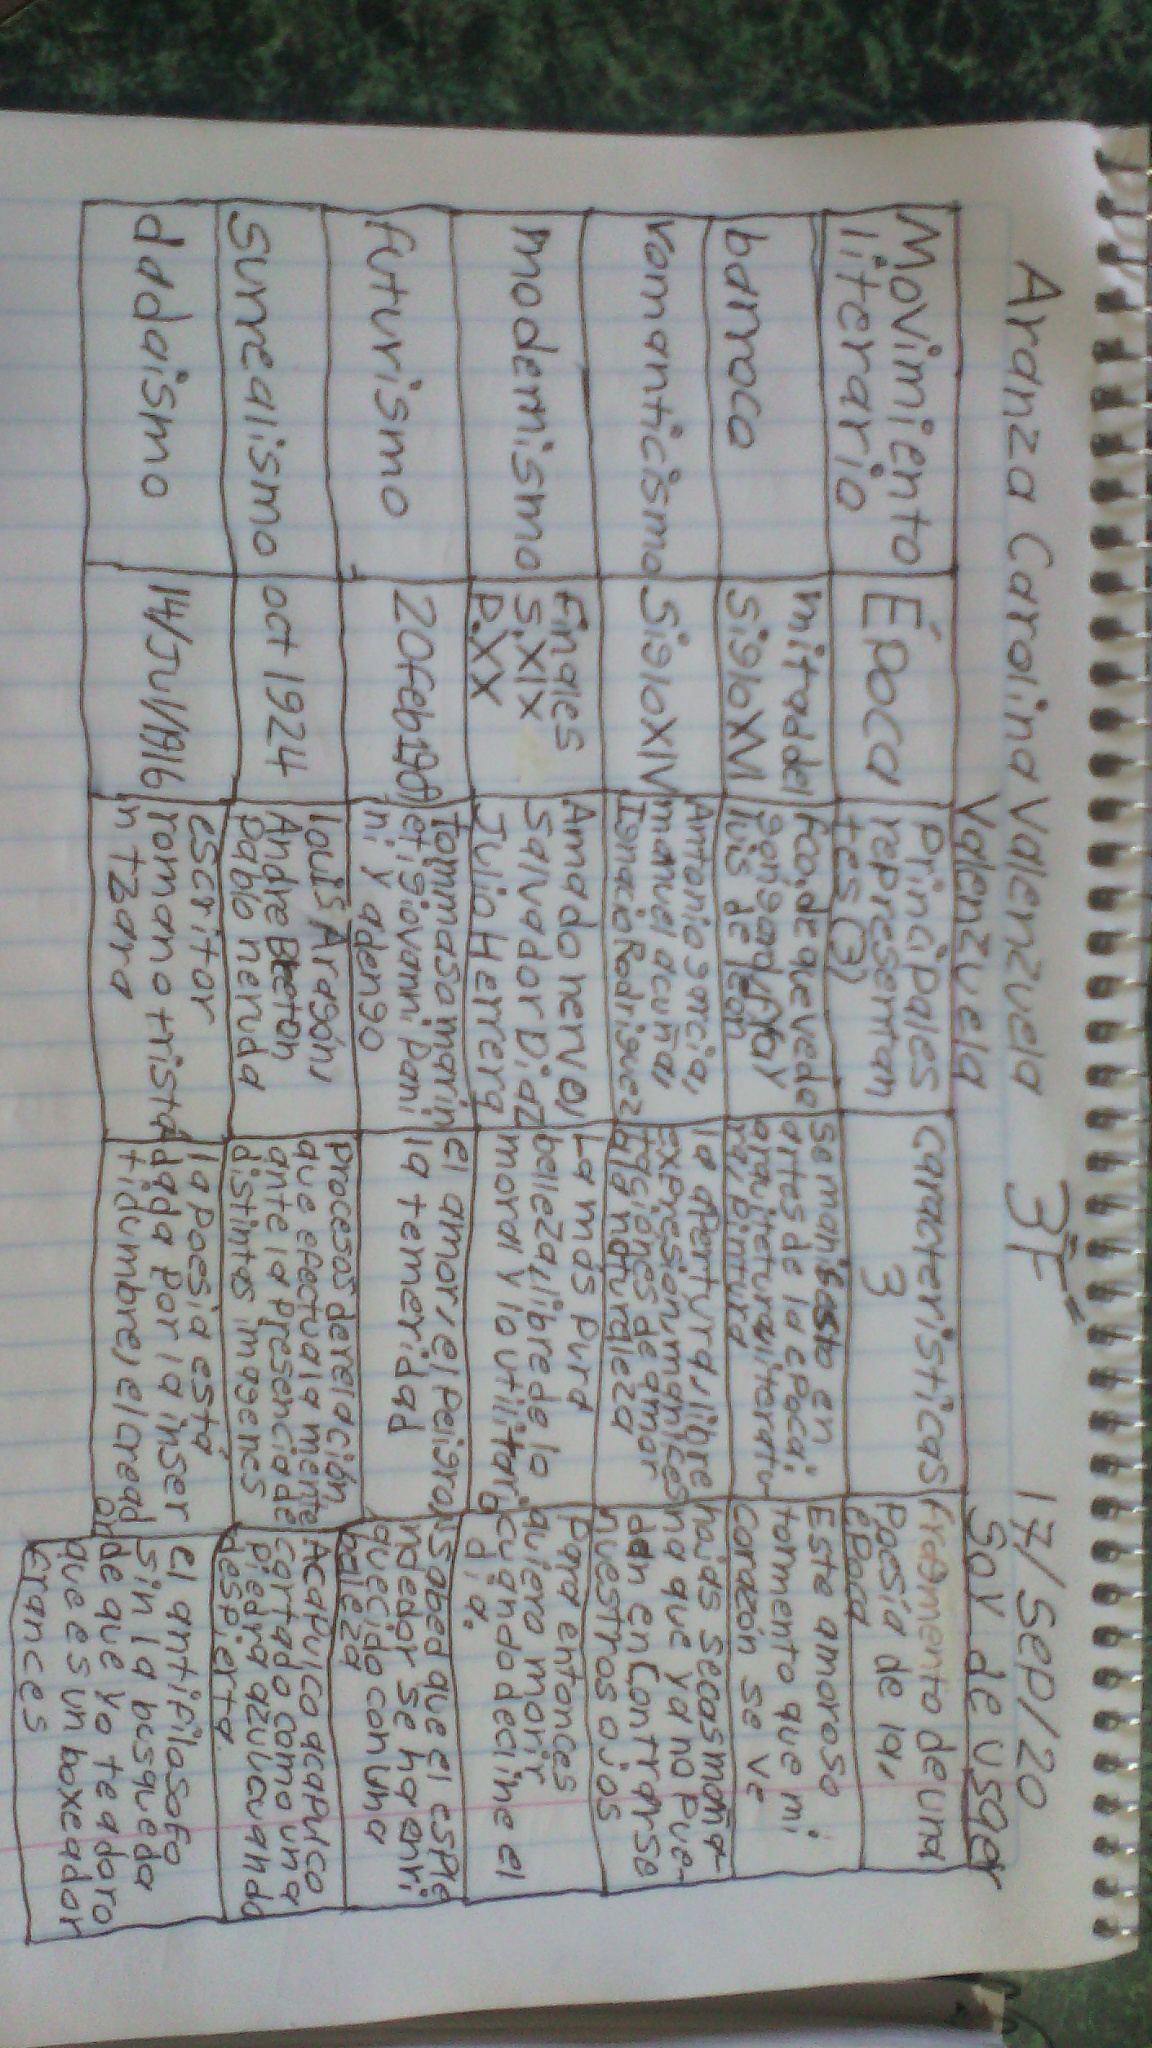 Aranza Carolina Valenzuela 3°F" 17/sep/20
Valenzuela soy de usaer
Movimiento
literario
Época
Principales
representan
tes (3)
características
3
fragmento de una
poesía de la,
época
barroco
mitad del
siglo XVI
fco. de quevedo
gongora, fray
luis de leon
se manifesto en
artes de la época:
arquitetura, literatu-
ra, pintura
Este amoroso
tormento que mi
corazón se ve
romanticismo
siglo XIV
Antonio garcia,
manuel acuña,
Ignacio Rodriguez
la apertura, libre
expresión, manifes
taciones de amor
a la naturaleza
hojas secas maña-
na que ya no pue-
dan encontrarse
nuestros ojos
modernismo
finales
s.XIX
p.XX
Amado nervo,
Salvador Diaz
Julio Herrera
La más pura
belleza, libre de lo
moral y lo utilitari
o
Para entonces
quiero morir
cuando decline el
día.
futurismo
20 feb 1909
tommaso marin
eti, giovanni pani
ni y adengo
el amor, el peligro,
la temeridad
Sabed que el esple
ndedor se ha enri
quecido con una
beleza
surrealismo
oct 1924
louis Aragón,
Andre Breton
Pablo neruda
Procesos de relación
que efectua la mente
ante la presencia de
distintas imagenes
Acapulco acapulco
cortado como una
piedra azul cuando
despierta.
dadaismo
14/Jul/1916
escritor
romano trista
n tzara
la poesia está
dada por la inser
tidumbre, el cread
or
el antifilosofo
sin la busqueda
de que yo te adoro
que es un boxeador
frances